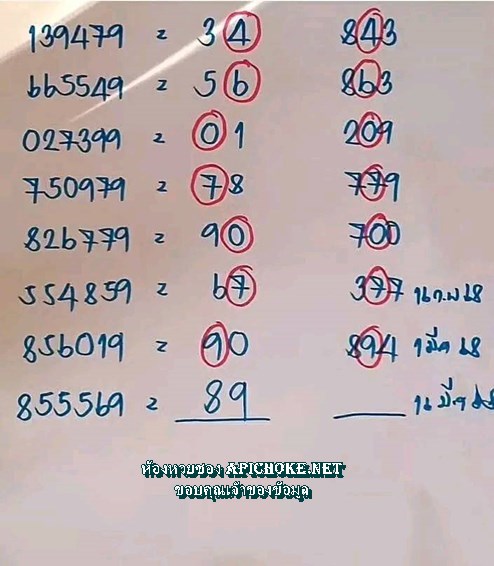 139479 = 34 843
665549 = 56 863
027399 = 01 209
750979 = 78 779
826779 = 90 700
554859 = 67 377 16 ก.พ 68
856019 = 90 894 1 มีค 68
855569 = 89 ____ 16 มีค 68
ห้องหวยซอง APICHOKE.NET
ขอบคุณเจ้าของข้อมูล